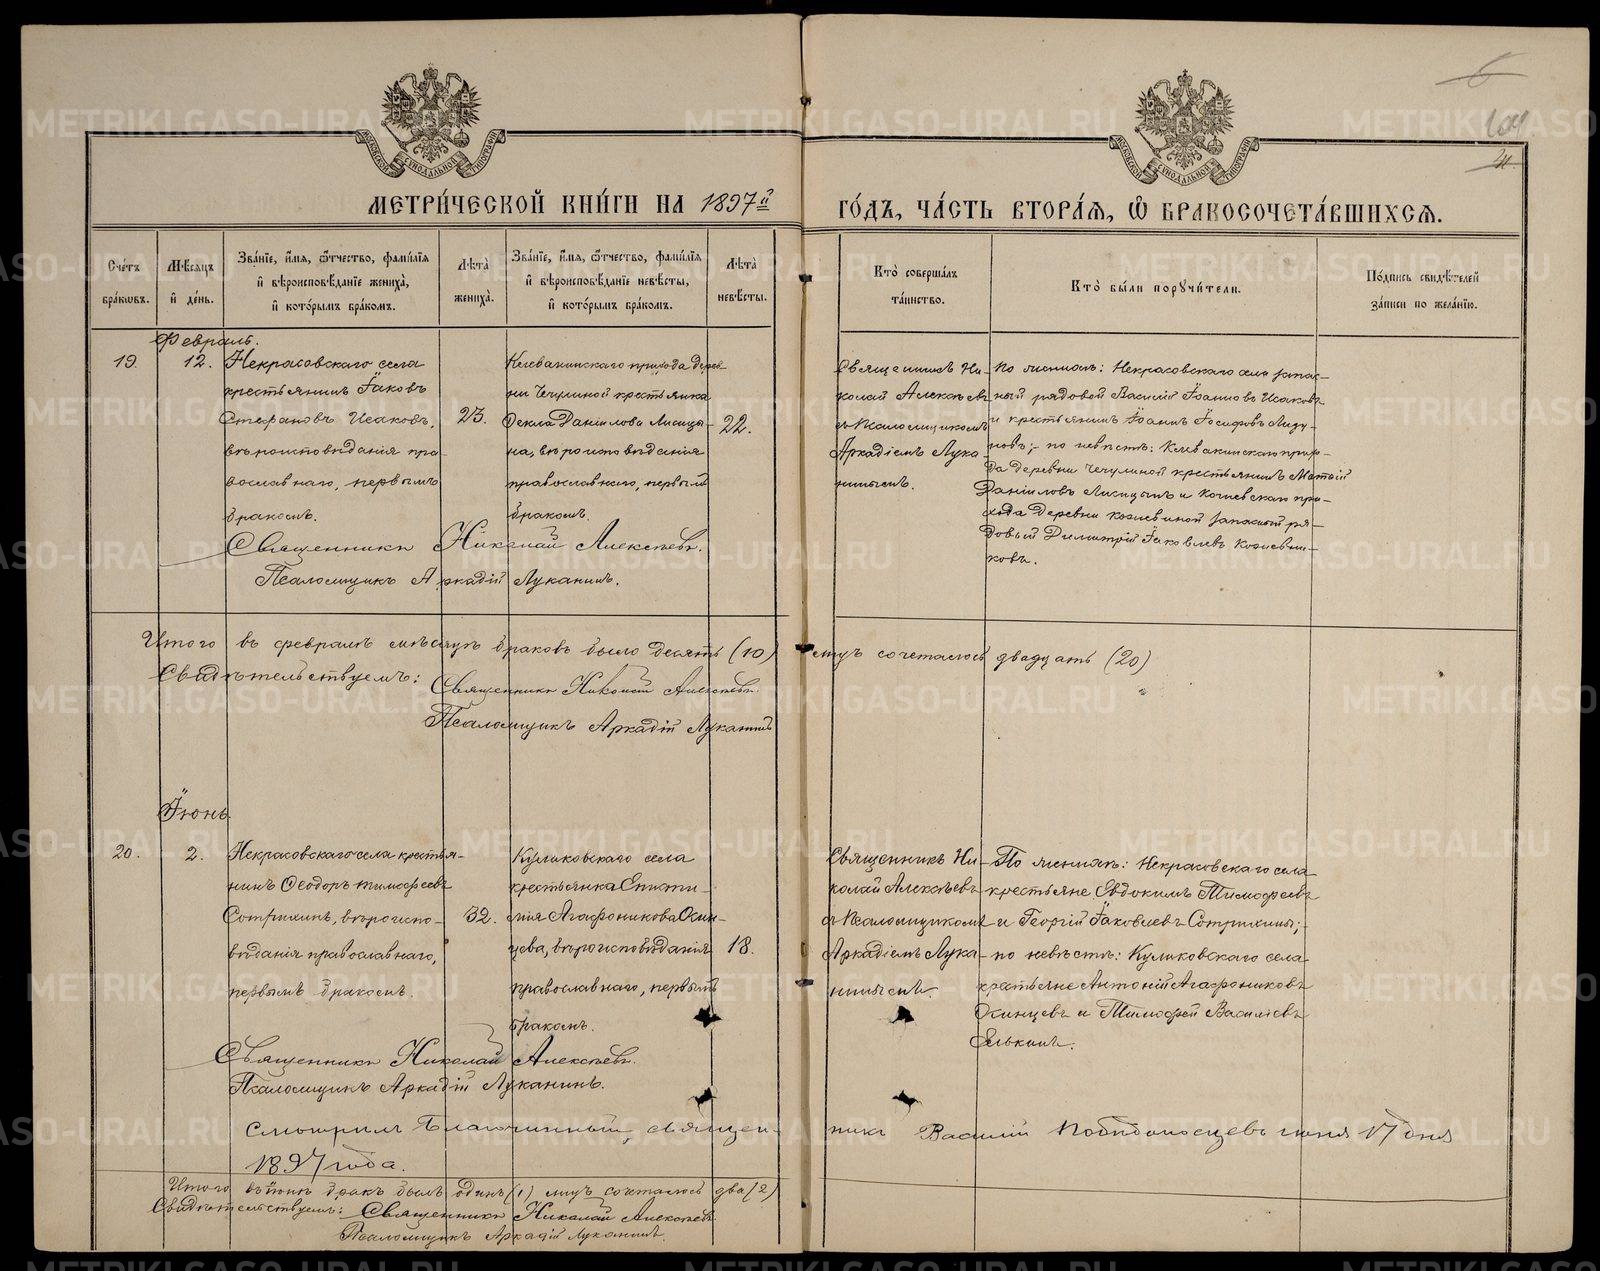 МЕТРИ́ЧЕСКОЙ КНИ́ГИ НА 1897й ГО́ДЪ, ЧА́СТЬ ВТОРА́Я, Ѡ БРАКОСОЧЕТА́ВШИХСЯ.
Сче́тъ бра́ковъ.
Мѣ́сяцъ й де́нь.
Зва́нїе, и́мя, ѿтчество, фами́лїя й вѣроисповѣ́данїе жениха̀, й кото́рымъ бра́комъ.
Лѣта̀ жениха̀.
Зва́нїе, и́мя, ѿтчество, фами́лїя й вѣроисповѣ́данїе невѣ́сты, й кото́рымъ бра́комъ.
Лѣта̀ невѣ́сты.
Кто̀ соверша́лъ та́инство.
Кто̀ бы́ли порꙋчи́тели.
По́дпись свидѣ́телей за́писи по жела́нїю.
Февраль.
19.
12.
Некрасовскаго села
крестьянинъ Іаковъ
Стефановъ Исаковъ,
вѣроисповѣданія пра-
вославнаго, первымъ
бракомъ.
23.
Клевакинскаго прихода дерев-
ни Чечулиной крестьянка
Ѳекла Даніилова Лисицы-
на, вѣроисповѣданія
православнаго, первымъ
бракомъ.
22.
Священникъ Ни-
колай Алексѣевъ
съ Псаломщикомъ
Аркадіемъ Лука-
нинымъ.
По женихѣ: Некрасовскаго села запас-
ный рядовой Василій Іоанновъ Исаковъ
и крестьянинъ Іоаннъ Іосифовъ Лизу-
новъ; по невѣстѣ: Клевакинскаго прихо-
да деревни Чечулиной крестьянинъ Матѳій
Даніиловъ Лисицынъ и Кочневскаго при-
хода деревни запасный ря-
довый Димитрій Іаковлевъ
ковъ.
Священникъ Николай Алексѣевъ.
Псаломщикъ Аркадій Луканинъ.
Итого въ февралѣ мѣсяцѣ браковъ было десять (10) лицъ сочеталось двадцать (20)
Свидѣтельствуемъ: Священникъ Николай Алексѣевъ.
Псаломщикъ Аркадій Луканинъ
Іюнь.
20.
2.
Некрасовскаго села крестья-
нинъ Ѳеодоръ Тимофеевъ
Сотрихинъ, вѣроиспо-
вѣданія православнаго,
первымъ бракомъ.
32.
Куликовскаго села
крестьянка Еписти-
мія Агафоникова Осин-
цева, вѣроисповѣданія
православнаго, первымъ
бракомъ.
18.
Священникъ Ни-
колай Алексѣевъ
съ Псаломщикомъ
Аркадіемъ Лука-
нинымъ.
По женихѣ: Некрасовскаго села
крестьяне Евдокимъ Тимофеевъ
и Георгій Іаковлевъ Сотрихины;
по невѣстѣ: Куликовскаго села
крестьяне Антоній Агафониковъ
Осинцевъ и Тимофей Василіевъ
Елькинъ.
Священникъ Николай Алексѣевъ.
Псаломщикъ Аркадій Луканинъ.
Смотрилъ Благочинный, священникъ Василій Побѣдоносцевъ іюня 17 дня
1897 года.
Итого въ іюнѣ бракъ былъ одинъ (1) лицъ сочеталось два (2)
Свидѣтельствуемъ: Священникъ Николай Алексѣевъ.
Псаломщикъ Аркадій Луканинъ.
METRIKI.GASO-URAL.RU